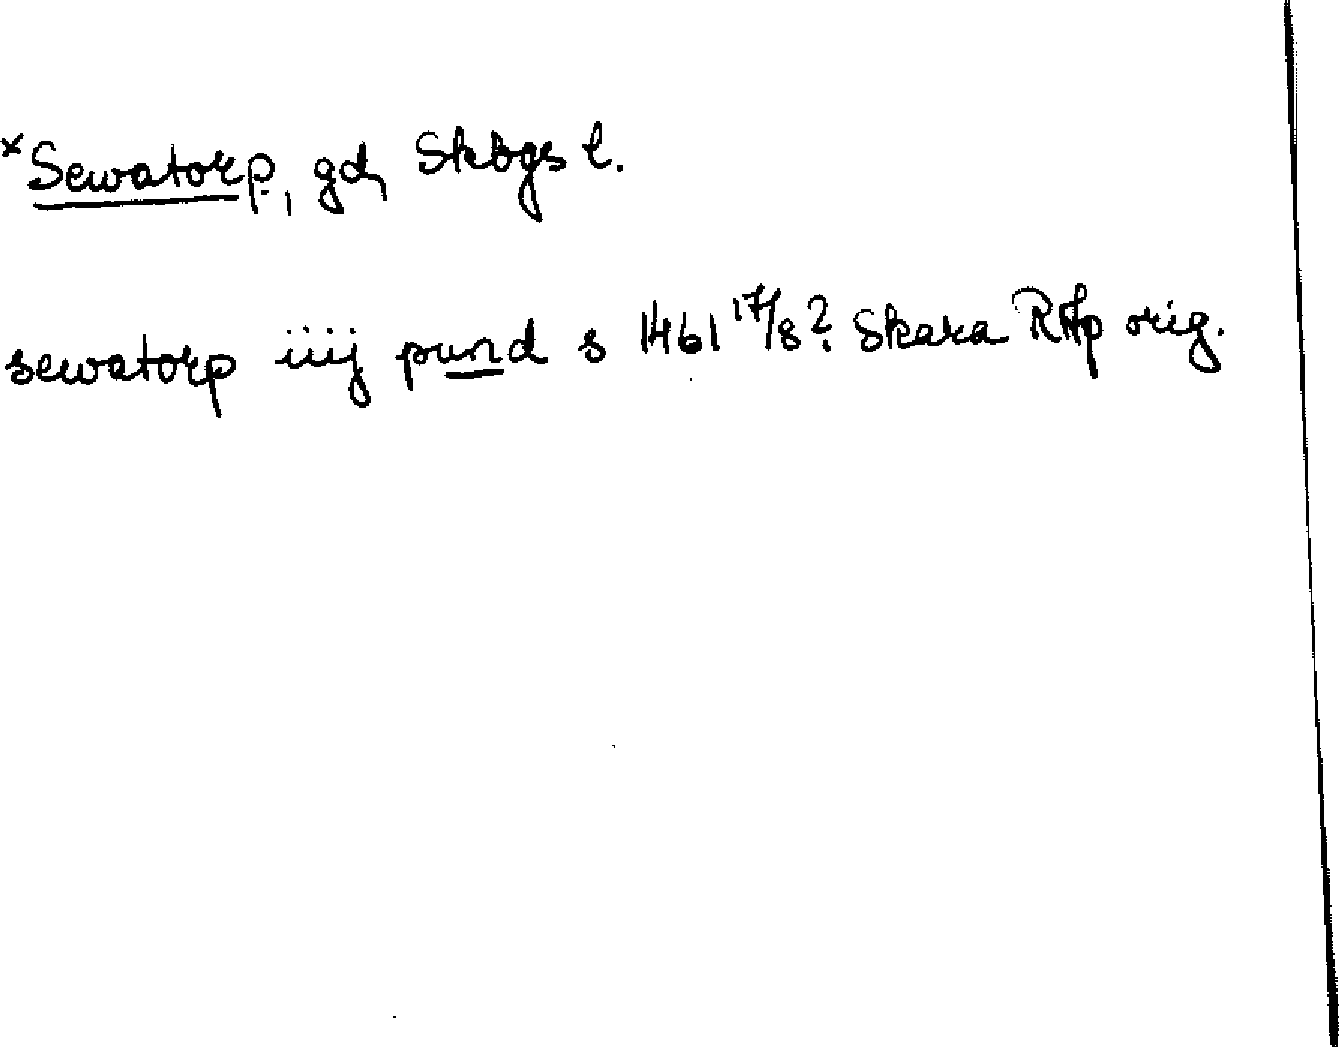 *Sewatorp, gd, Skbgs l.
sewatorp iiij pund s 1461 17/8? Skara RAp orig.